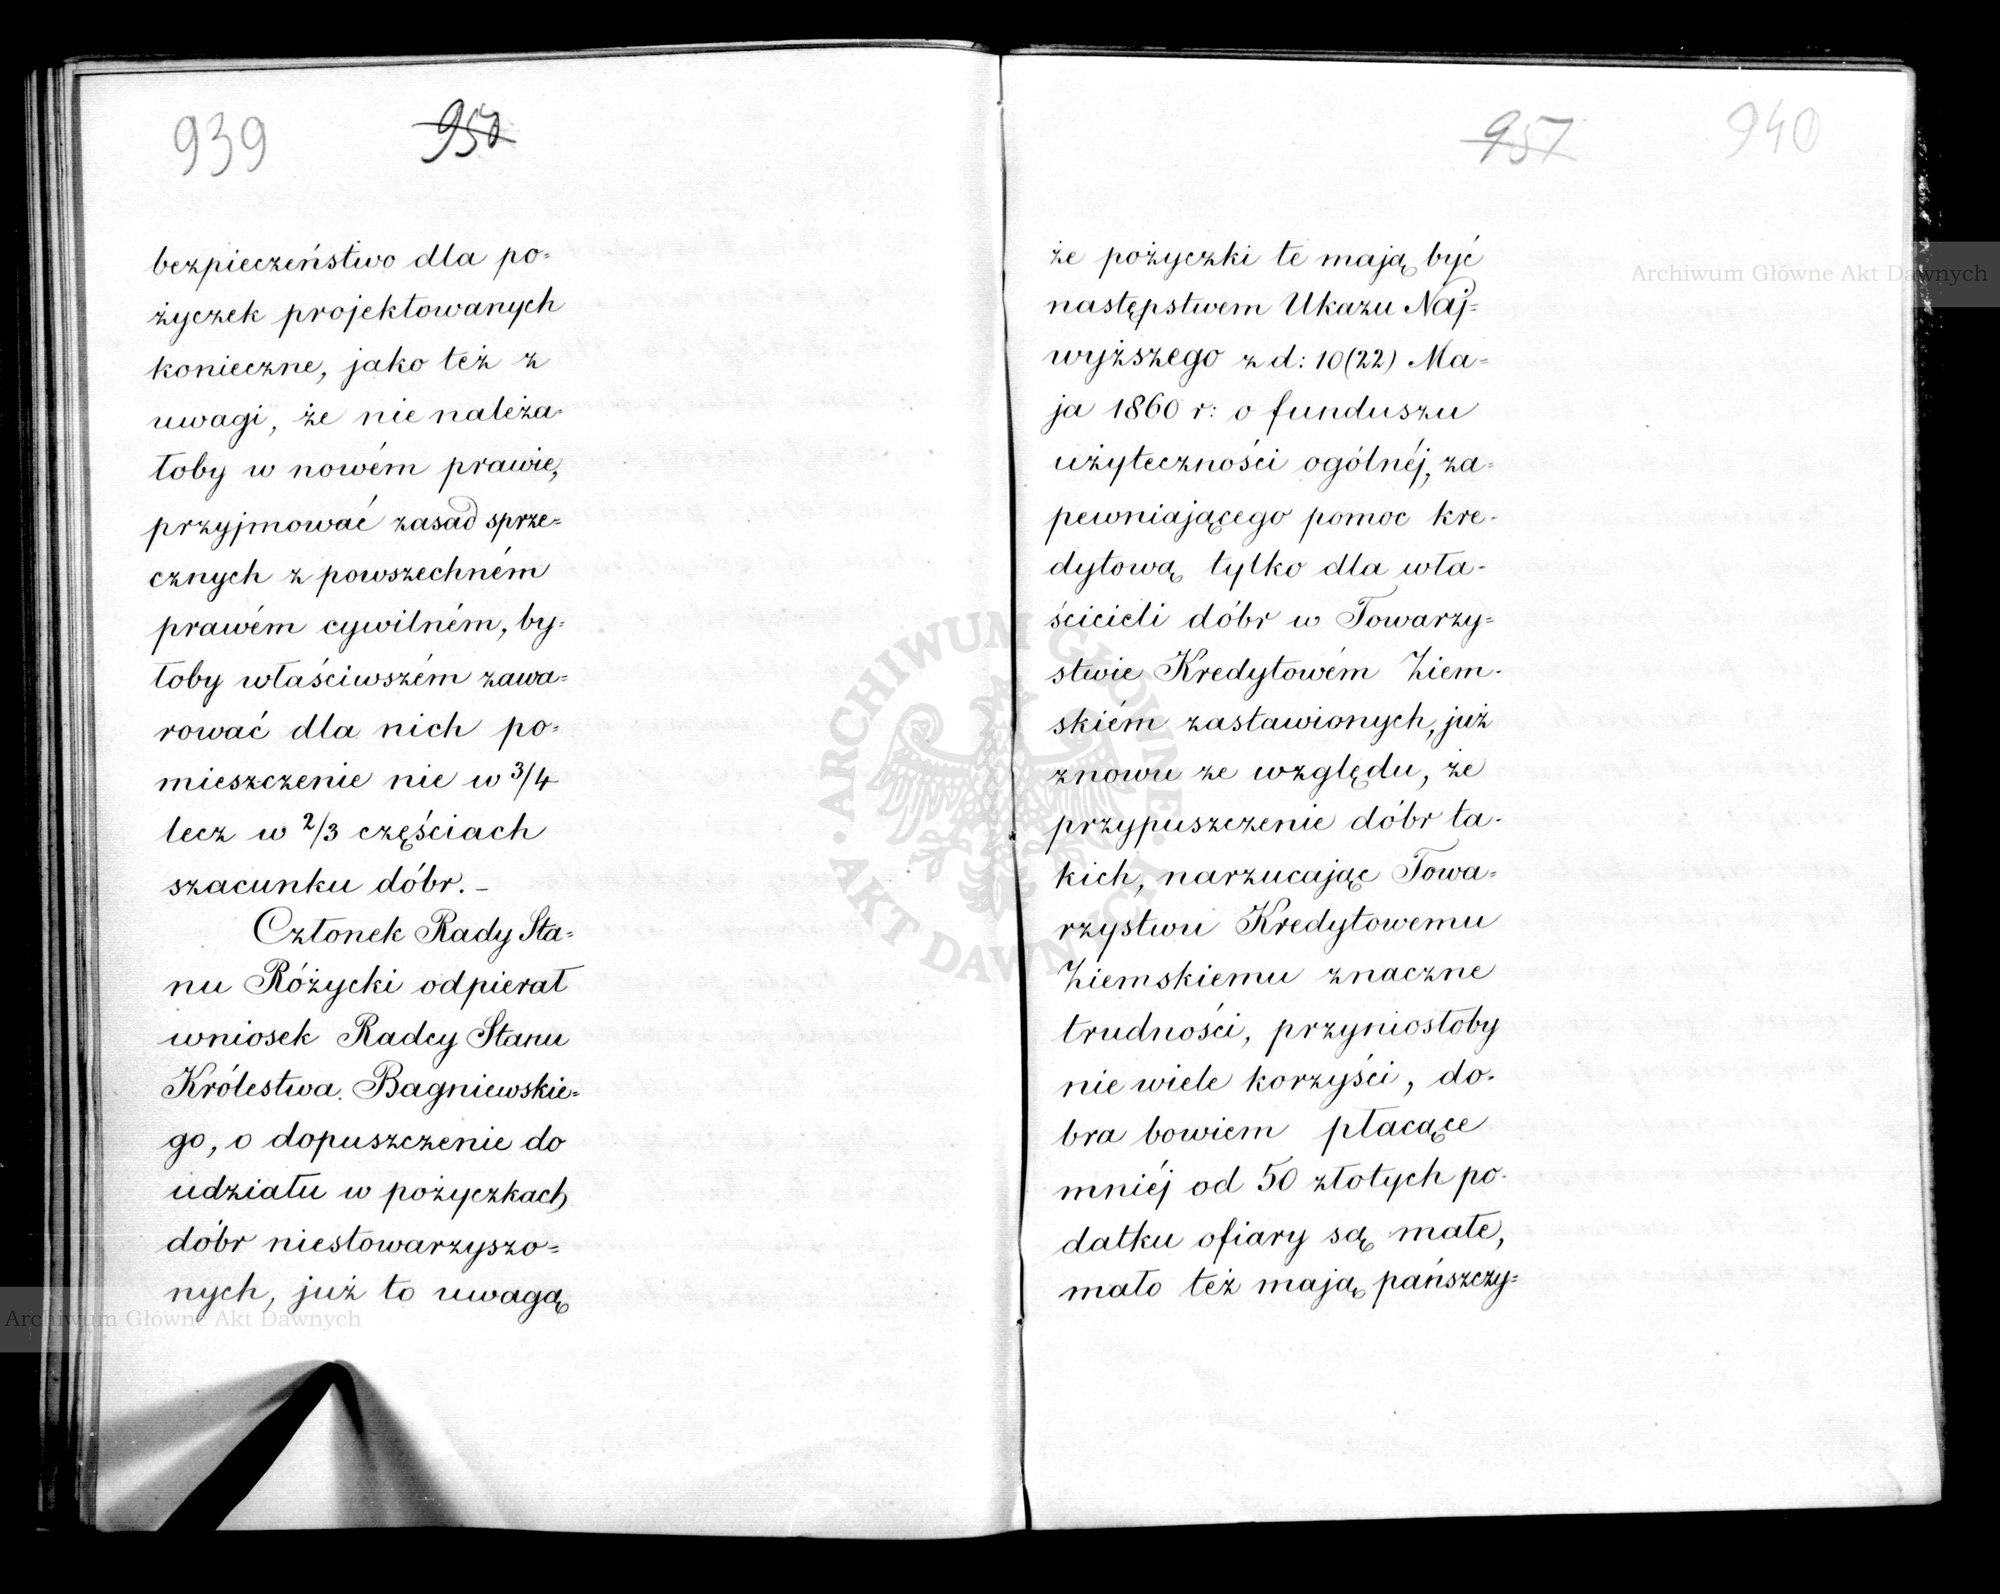 939
950
bezpieczeństwo dla po=
życzek projektowanych
konieczne, jako też z
uwagi, że nie należa-
łoby w nowém prawie,
przyjmować zasad sprze=
cznych z powszechném
prawém cywilném, by=
łoby właściwszém zawa=
rować dla nich po=
mieszczenie nie w 3/4
lecz w 2/3 częściach
szacunku dóbr. –
Członek Rady Sta=
nu Różycki odpierał
wniosek Radcy Stanu
Królestwa Bagniewskie=
go, o dopuszczenie do
udziału w pożyczkach
dóbr niestowarzyszo=
nych, już to uwagą
957
940
że pożyczki te mają być
następstwem Ukazu Naj=
wyższego z d: 10(22) Ma=
ja 1860 r: o funduszu
użyteczności ogólnéj, za=
pewniającego pomoc kre-
dytową tylko dla wła-
ścicieli dóbr w Towarzy=
stwie Kredytowém Ziem-
skiém zastawionych, już
znowu ze względu, że
przypuszczenie dóbr ta-
kich, narzucając Towa=
rzystwu Kredytowemu
Ziemskiemu znaczne
trudności, przyniosłoby
nie wiele korzyści, do-
bra bowiem płacące
mniéj od 50 złotych po-
datku ofiary są małe,
mało też mają pańszczy=
Archiwum Główne Akt Dawnych
Archiwum Główne Akt Dawnych
ARCHIWUM GŁÓWNE AKT DAWNYCH